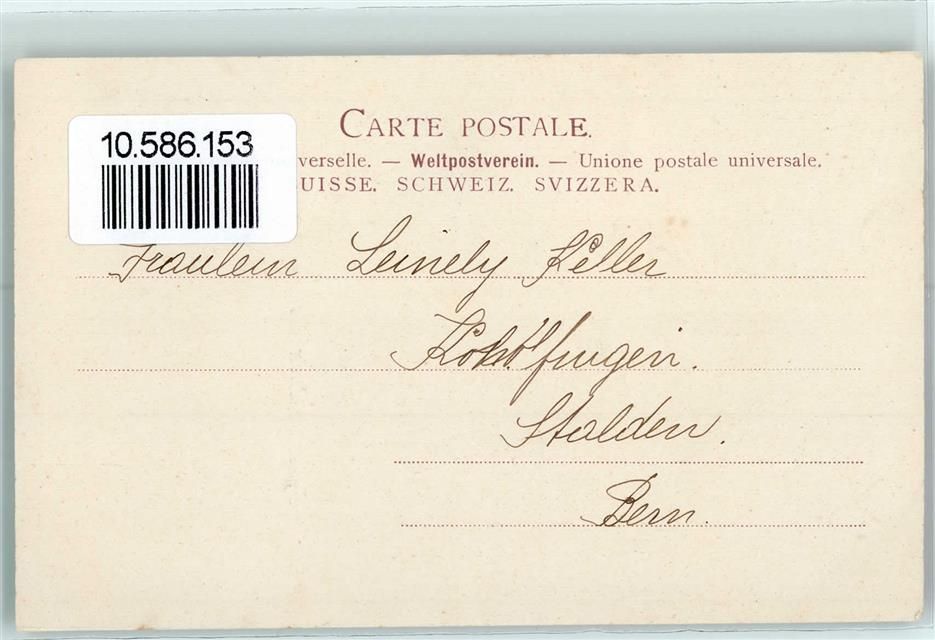 CARTE POSTALE.
10.586.153
verselle. — Weltpostverein. — Unione postale universale.
UISSE. SCHWEIZ. SVIZZERA.
Fraulein Keller
Stalden.
Bern.